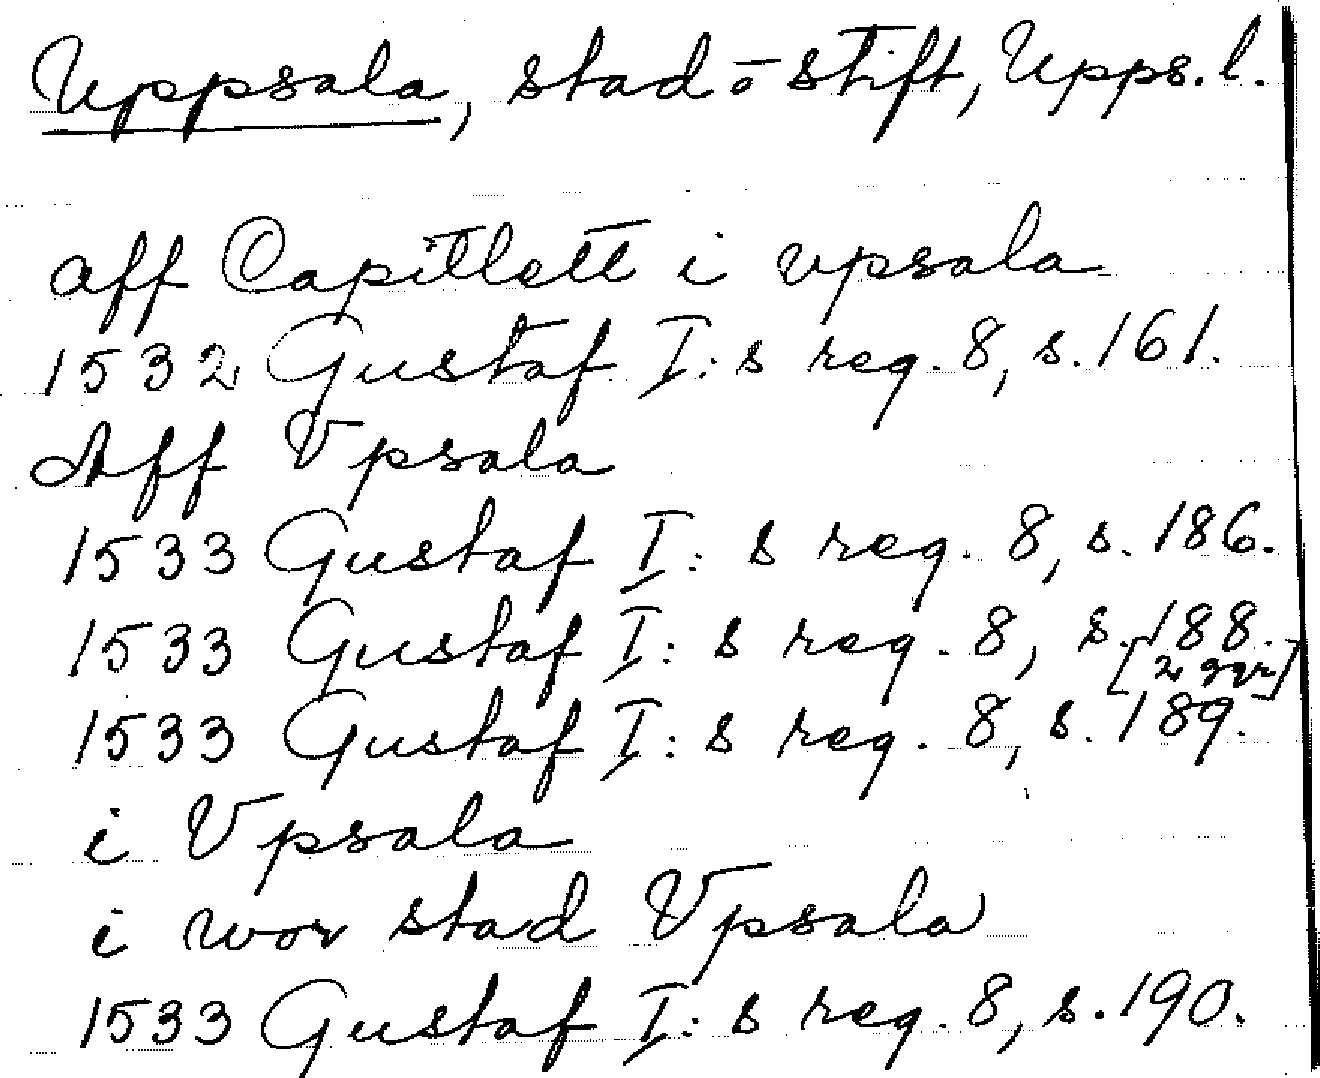 Uppsala, stad o stift, Upps. l.
aff Capitlett i vpsala
1532 Gustaf I:s reg. 8, s. 161.
Aff Vpsala
1533 Gustaf I:s reg. 8, s. 186.
1533 Gustaf I:s reg. 8, s. 188.
[2 ggr]
1533 Gustaf I:s reg. 8, s. 189.
i Vpsala
i wor stad Vpsala
1533 Gustaf I:s reg. 8, s. 190.